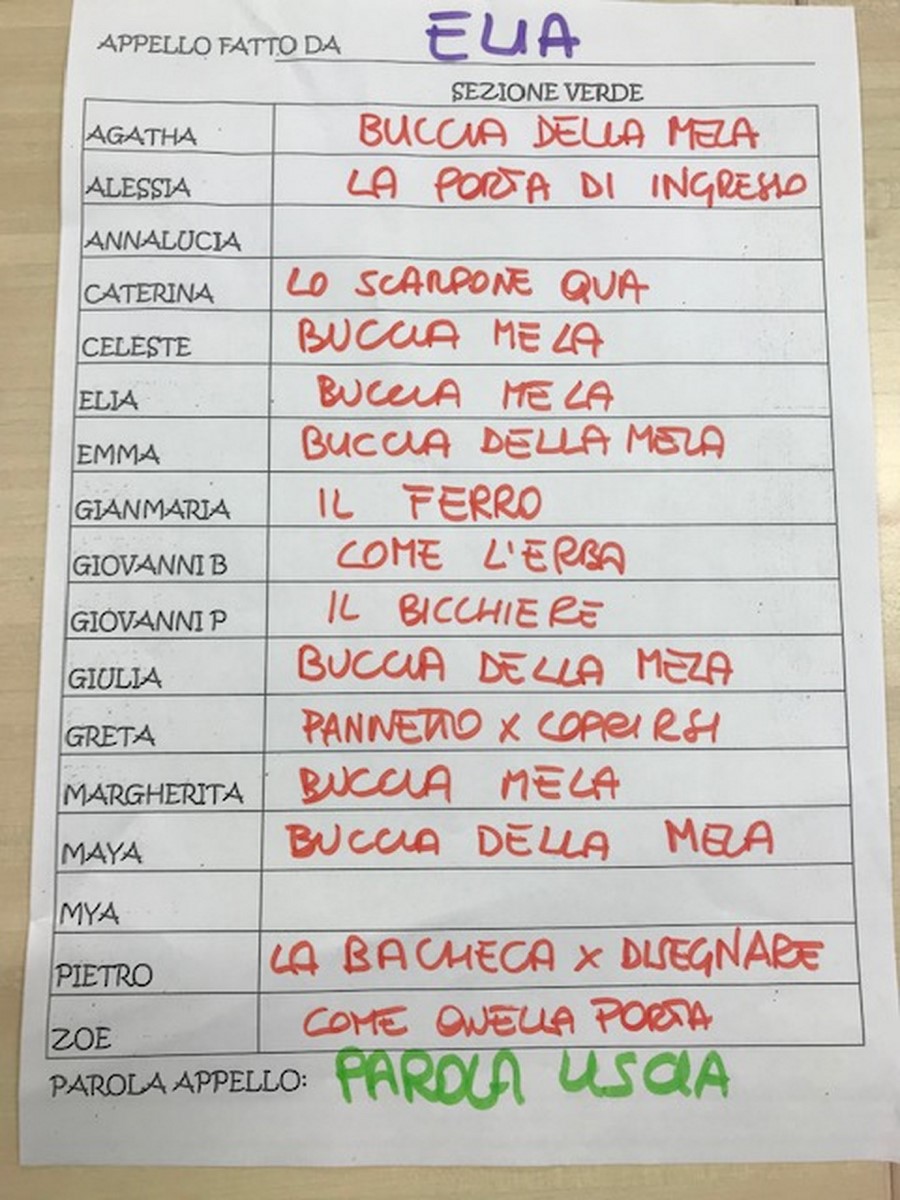 APPELLO FATTO DA ELIA
SEZIONE VERDE
AGATHA BUCCIA DELLA MELA
ALESSIA LA PORTA DI INGRESSO
ANNALUCIA
CATERINA LO SCARPONE QUA
CELESTE BUCCIA MELA
ELIA BUCCIA MELA
EMMA BUCCIA DELLA MELA
GIANMARIA IL FERRO
GIOVANNI B COME L'ERBA
GIOVANNI P IL BICCHIERE
GIULIA BUCCIA DELLA MELA
GRETA PANNETTO X COPRIRSI
MARGHERITA BUCCIA MELA
MAYA BUCCIA DELLA MELA
MYA
PIETRO LA BACHECA X DISEGNARE
ZOE COME QUELLA PORTA
PAROLA APPELLO: PAROLA USCIA